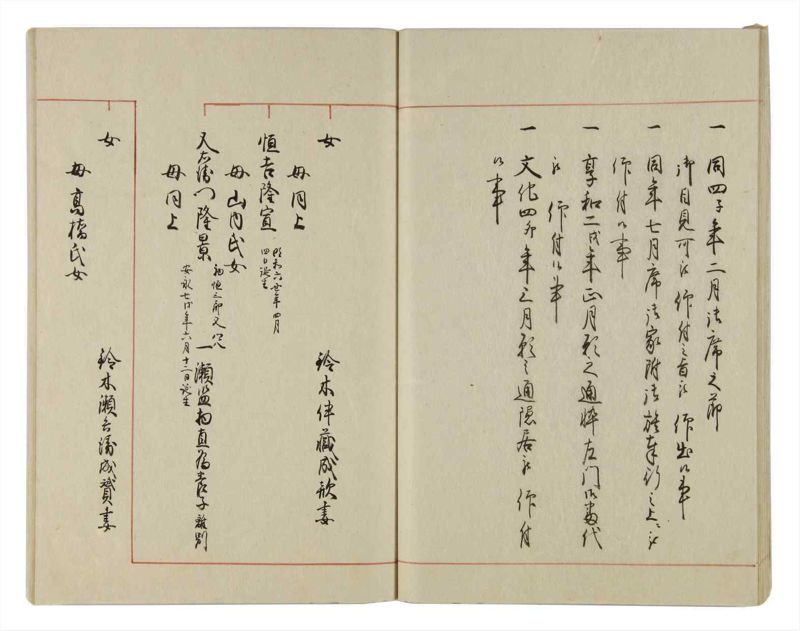 一 同四子年二月法席之節
御目見可被 仰付之旨被 仰出候事
一 同年七月席法家
仰付候事
一 享和二戌年正月願之通悴左門御番代
被 仰付候事
一 文化四卯年三月願之通隠居被 仰付
候事
女 鈴木伴蔵成
妻
母同上
恒吉隆宣 明和六丑年四月
四日誕生
母山内氏女
又右衛門隆景 初恒三郎又
安永七戌年六月十二日誕生
一瀬
直為養子離別
母同上
女 鈴木瀬兵衛成賛妻
母高橋氏女